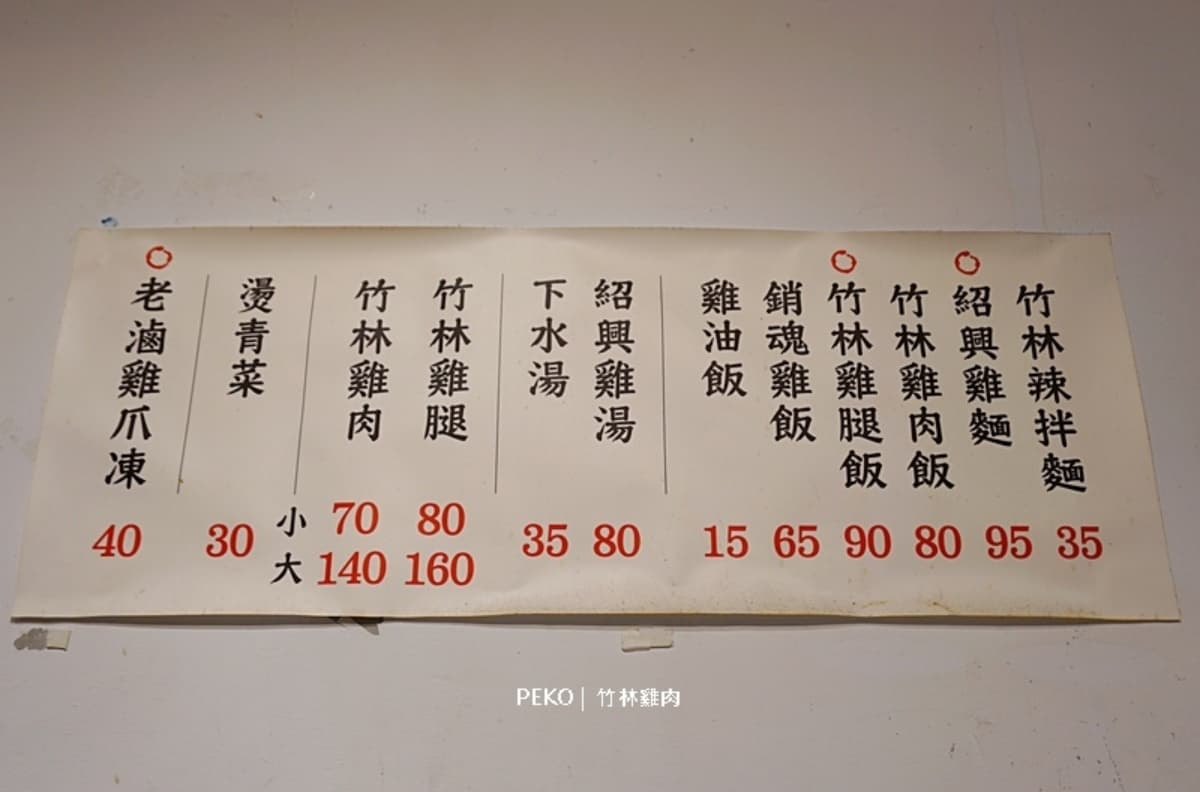 竹林辣拌麵 35
紹興雞麵 95
竹林雞肉飯 80
竹林雞腿飯 90
銷魂雞飯 65
雞油飯 15
紹興雞湯 80
下水湯 35
竹林雞腿 小 80 大 160
竹林雞肉 小 70 大 140
燙青菜 30
老滷雞爪凍 40
PEKO | 竹林雞肉